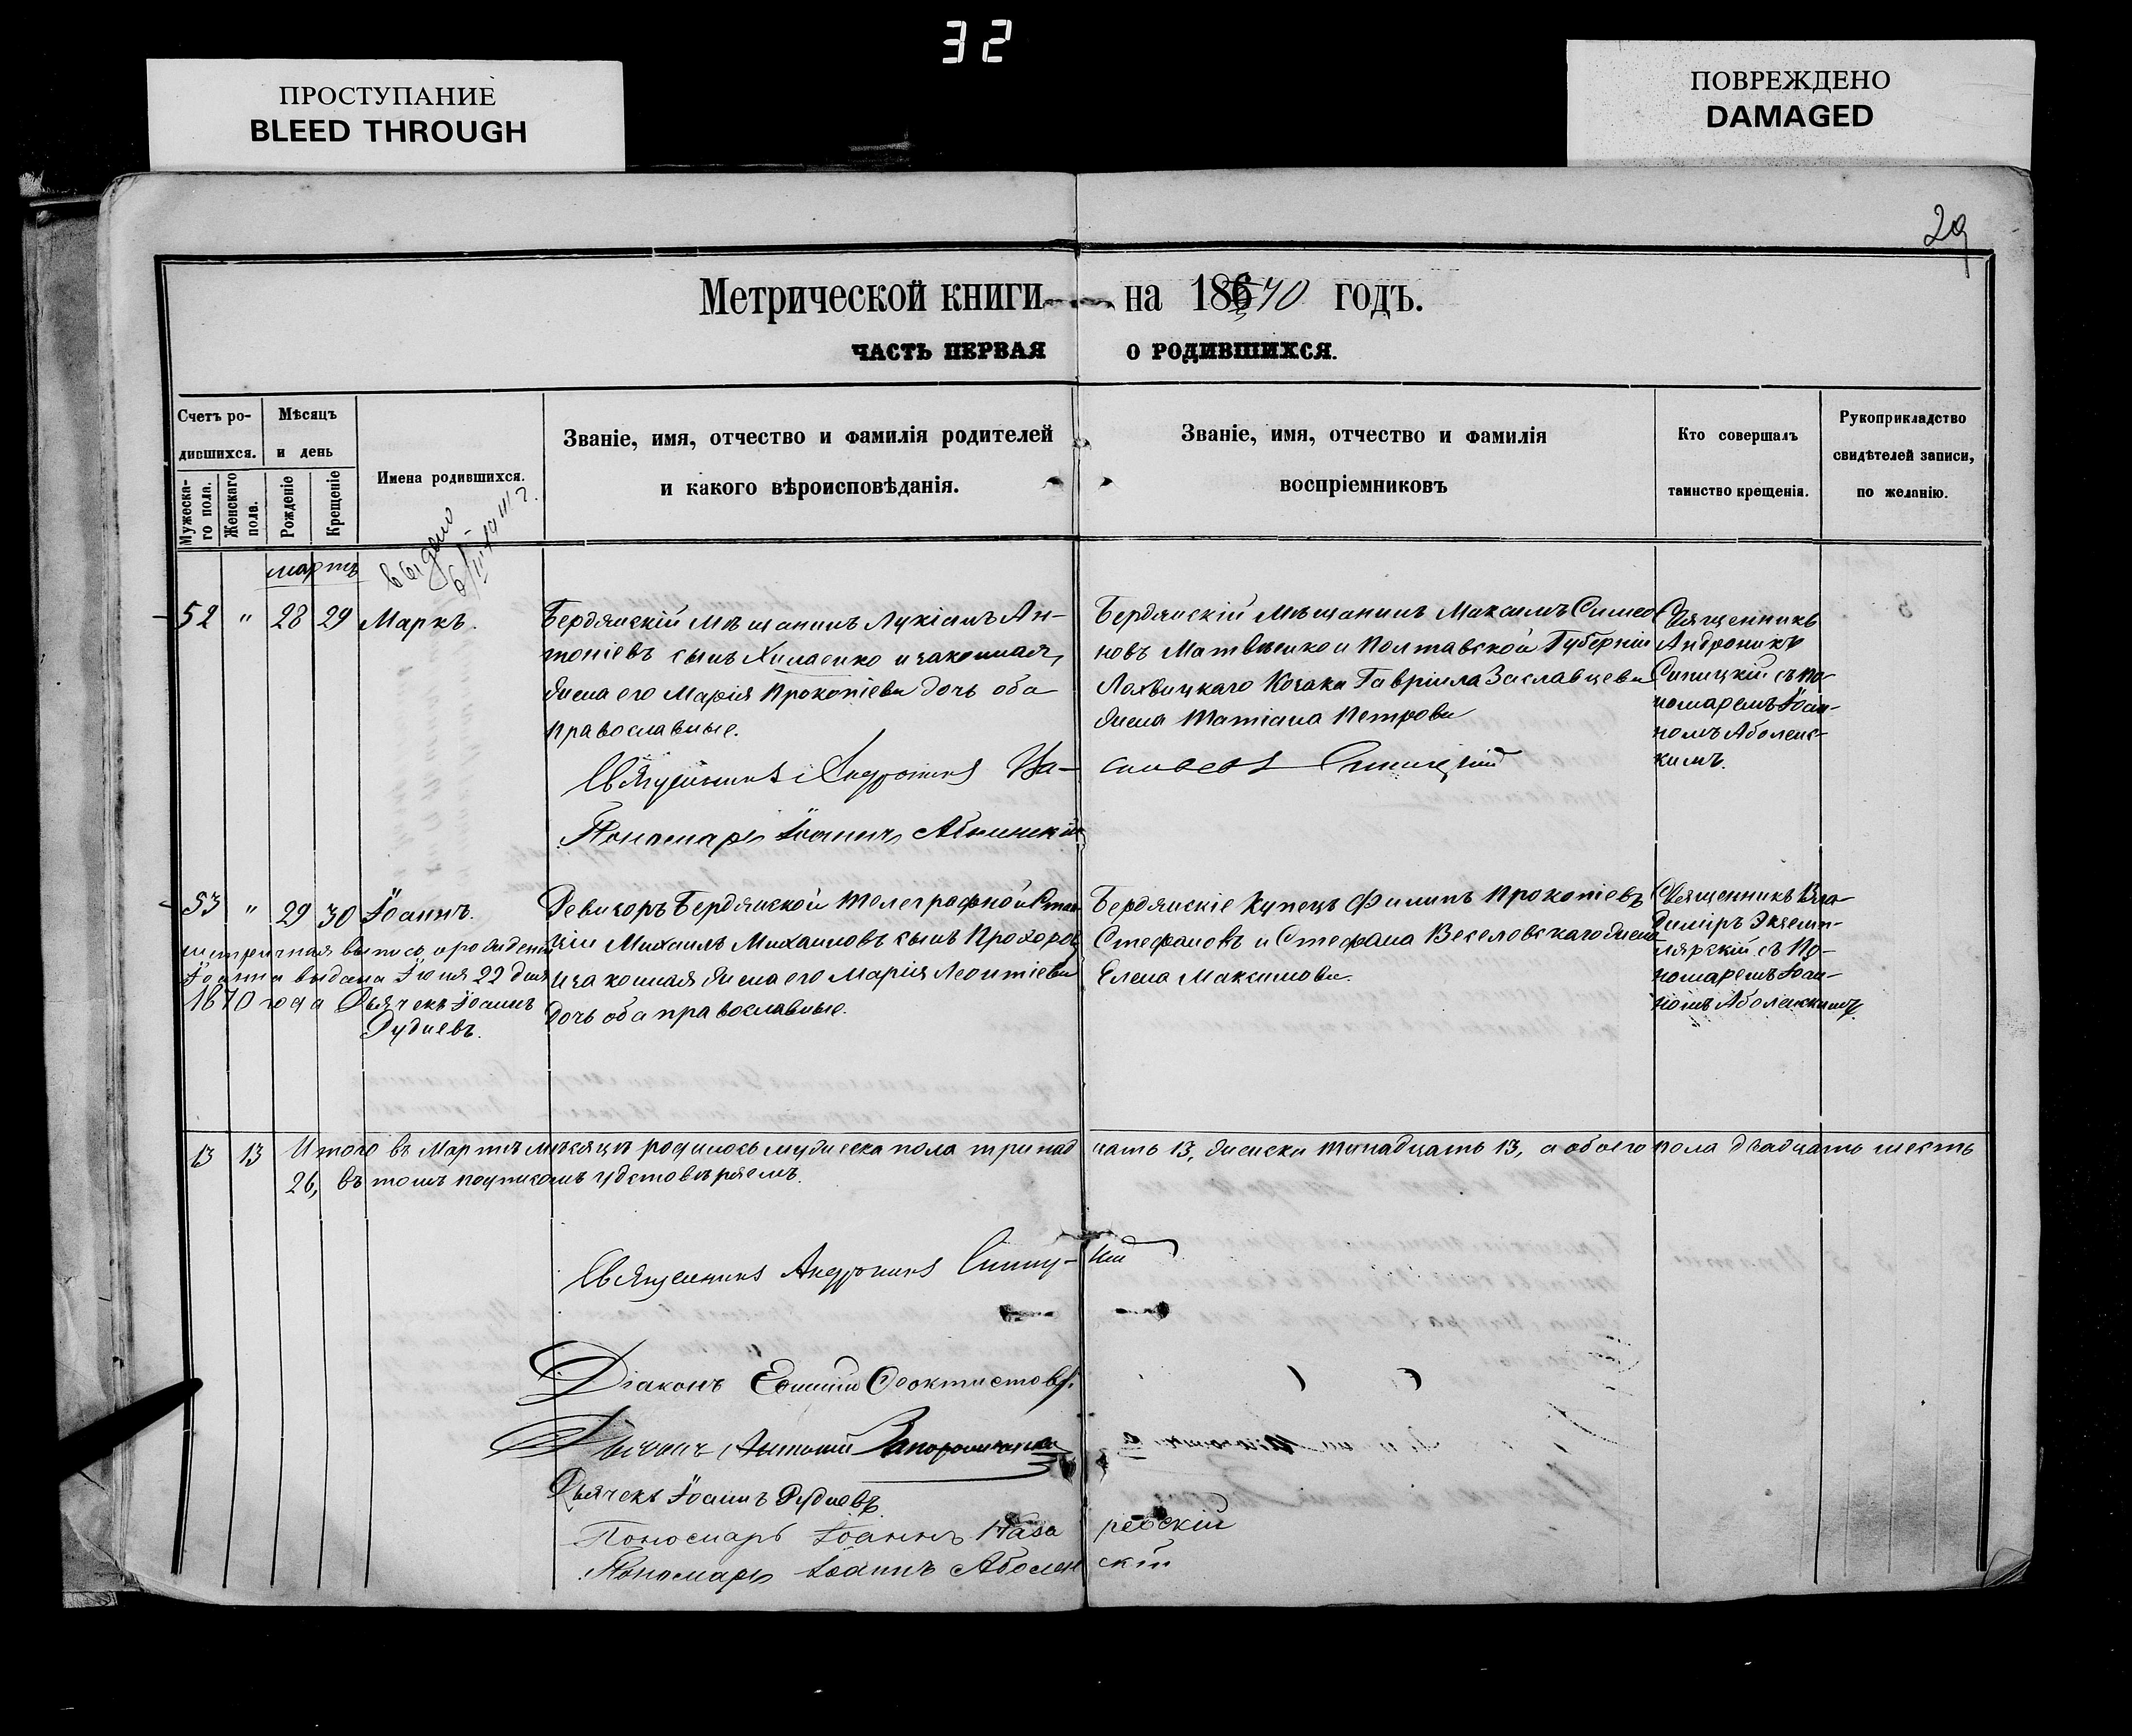 32
ПРОСТУПАНИЕ
BLEED THROUGH
ПОВРЕЖДЕНО
DAMAGED
29
Метрической книги на 1870 годъ.
ЧАСТЬ ПЕРВАЯ О РОДИВШИХСЯ.
Счетъ ро-
дившихся.
Мужеска-
го пола.
Женскаго
пола.
Мѣсяцъ
и день
Рожденіе
Крещеніе
Имена родившихся.
Званіе, имя, отчество и фамилія родителей
и какого вѣроисповѣданія.
Званіе, имя, отчество и фамилія
воспріемниковъ
Кто совершалъ
таинство крещенія.
Рукоприкладство
свидѣтелей записи,
по желанію.
выдано
мартъ
52 " 28 29 Маркъ.
Бердянскій Мѣщанинъ Лукіанъ Ан-
тоніевъ сынъ Хиласико и законная
жена его Марія Прокопіева дочь оба
православные.
Бердянскій Мѣщанинъ Максимъ Симео
новъ Матвѣенко и Полтавской Губерніи
Лохвицкаго Козака Гавріила Заславцева
жена Татіана Петрова
Священникъ
Андроникъ
Синицкій съ По-
номаремъ Іоан-
номъ Аболенс-
кимъ.
Священникъ Андроникъ Синицкій
Пономарь Іоаннъ Аболенскій
53 " 29 30 Іоаннъ.
Ревизоръ Бердянской Телеграфной Стан
ціи Михаилъ Михаиловъ сынъ Прохоровъ
и законная жена его Марія Леонтіева
дочь оба православные.
Бердянскіе Купецъ Филипъ Прокопіевъ
Стефановъ и Стефана Веселовскаго жена
Елена Максимова.
Священникъ Вла-
диміръ Экземп-
лярскій съ По-
номаремъ Іоан-
номъ Аболенскимъ
метричная выпись о рожденіи
Іоанна выдана Іюня 22 дня
1870 года Дьячекъ Іоаннъ
Рудневъ.
13 13 Итого въ Мартѣ мѣсяцѣ родилось мужеска пола тринад цать 13, женска тинадцать 13, а обоего пола двадцать шесть
26, въ томъ подписомъ удстовѣряемъ.
Священникъ Андроникъ Синиц- кій
Діаконъ Ефимій Феоктистовъ.
Дьячекъ Іоаннъ Рудневъ
Пономарь Іоаннъ Наза ревскій
Пономарь Іоаннъ Аболен скій